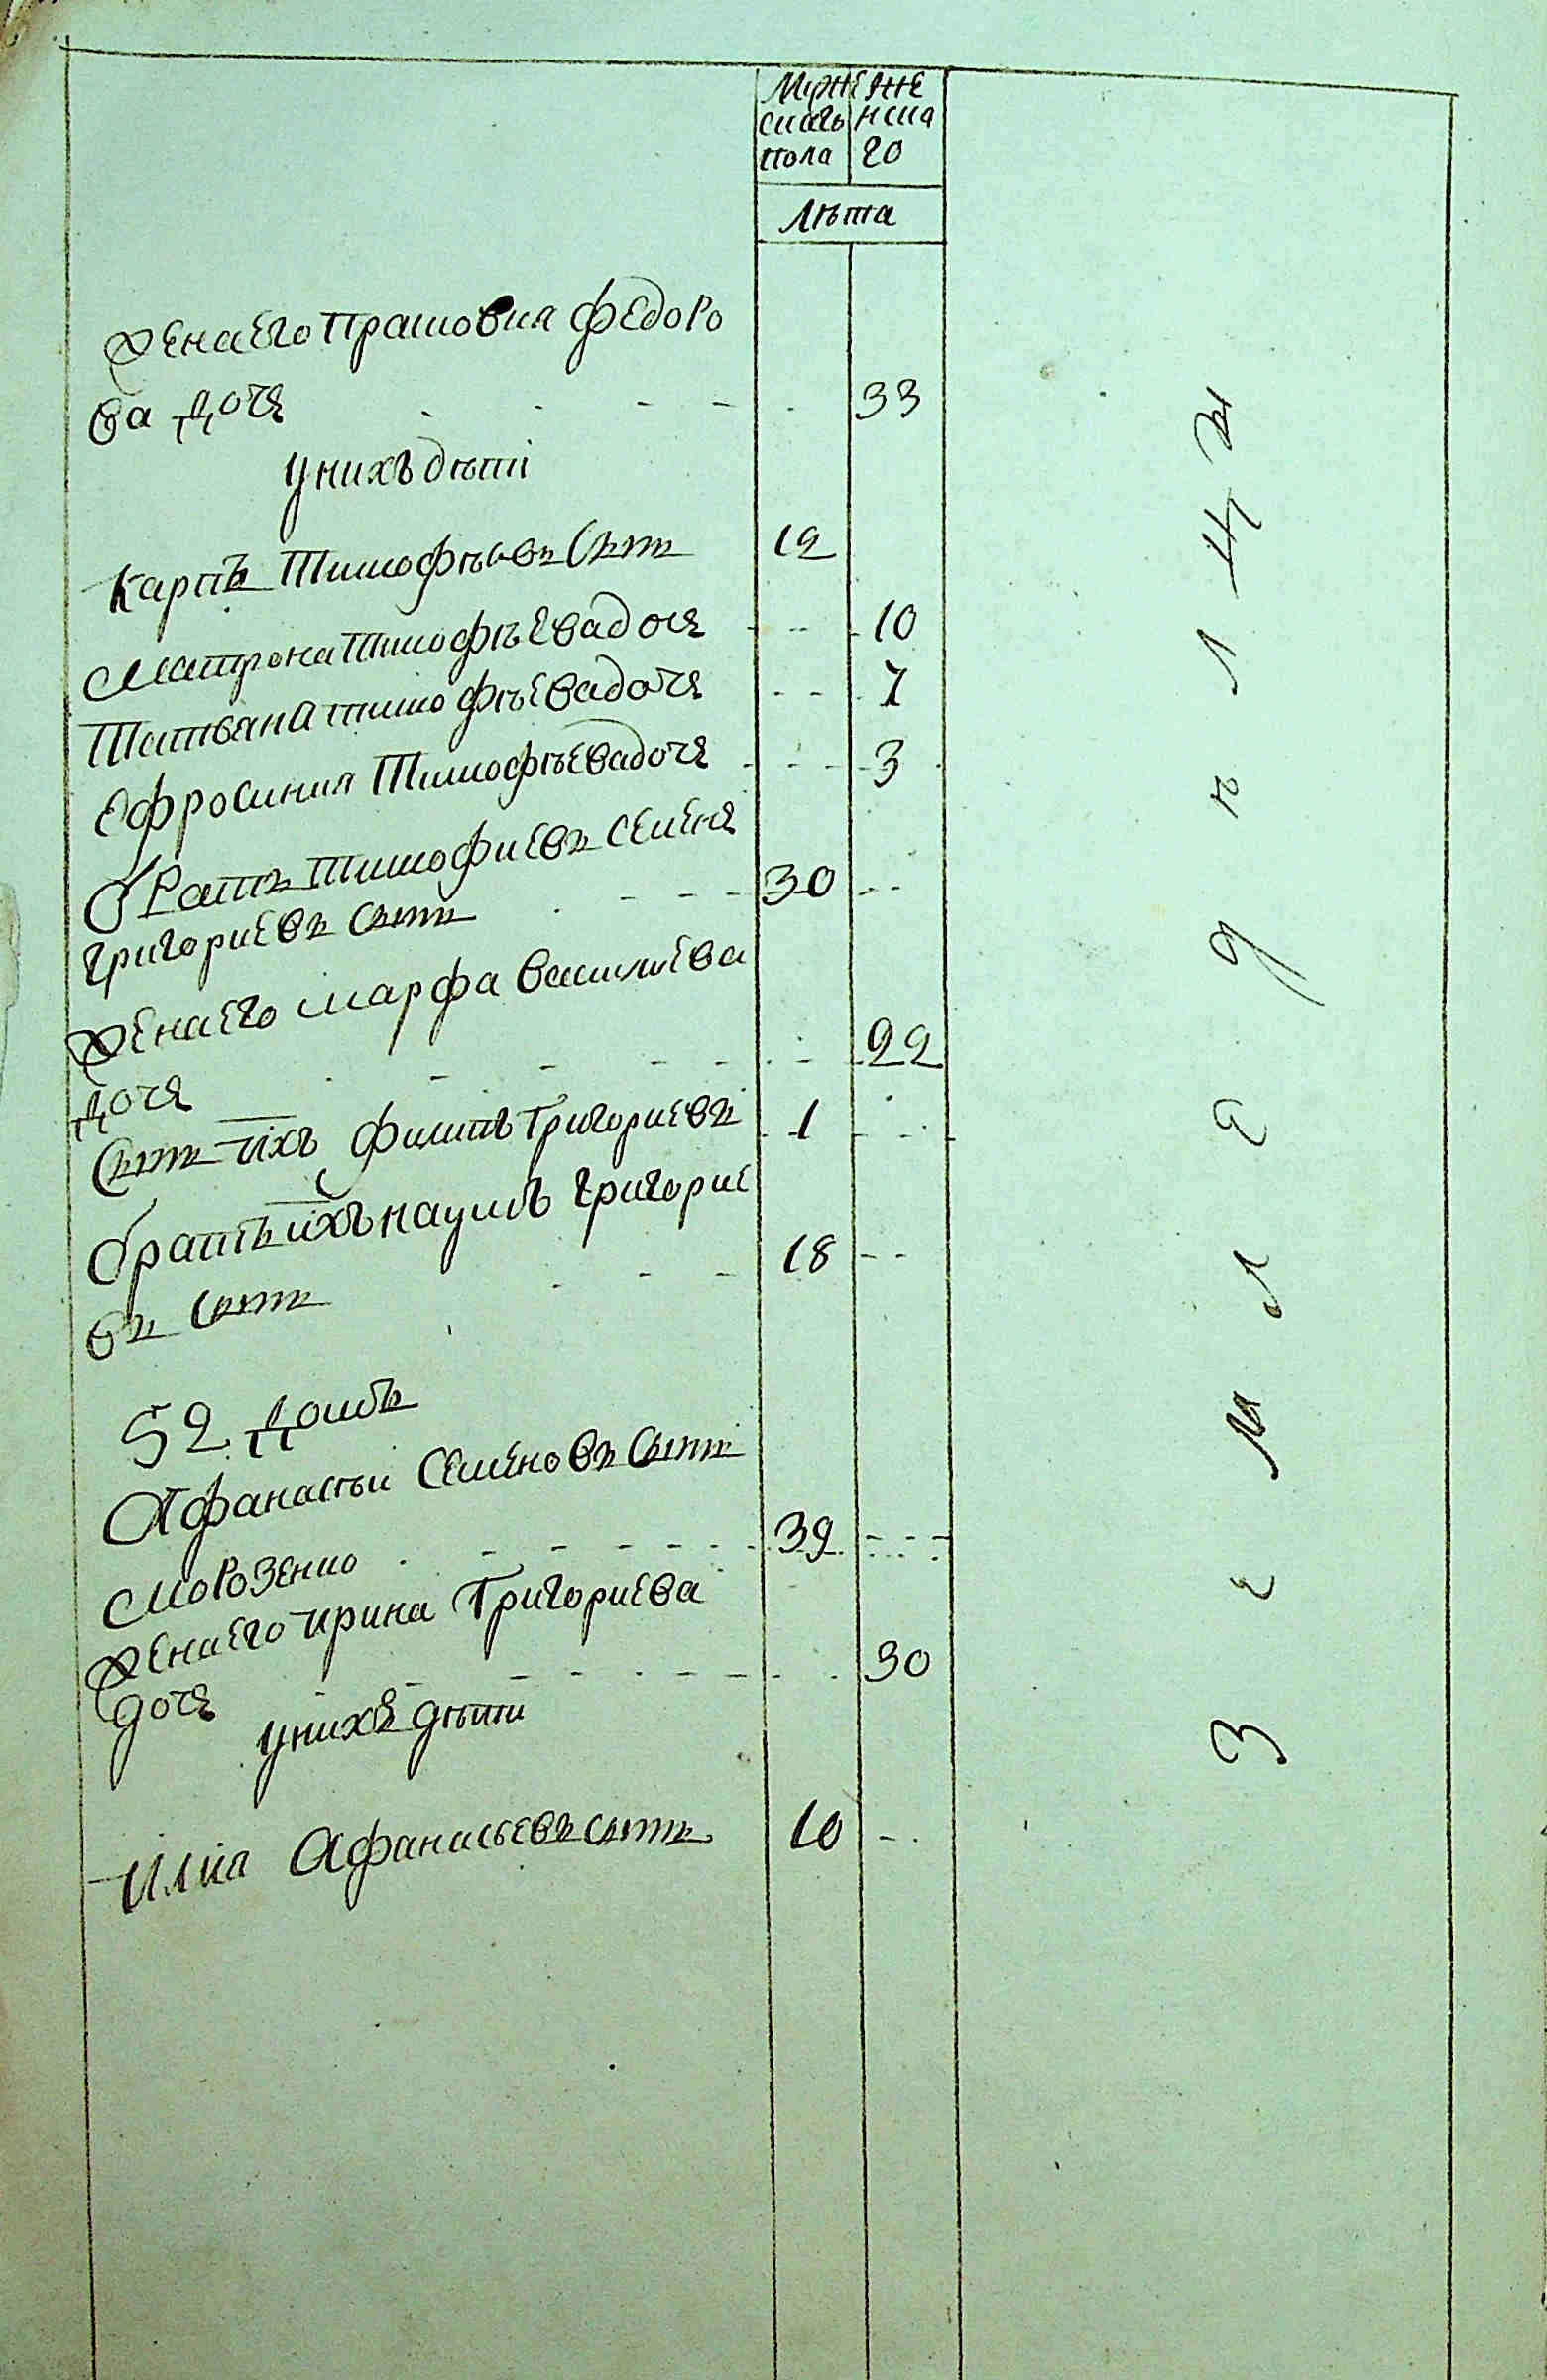 Муже
скаго
пола
Же
нска
го
Лѣта
Жена Его Прасковия Федоро
ва дочь 33
у них дѣти
Карпъ Тимофѣевъ Сынъ 12
Матрона Тимофѣева дочь 10
Татьяна Тимофѣева дочь 7
Ефросиния Тимофѣева дочь 3
братъ Тимофиевъ Семенъ
Григориевъ Сынъ 30
Жена Его марфа васильева
дочь 22
Сынъ ихъ Филипъ Григориевъ 1
братъ ихъ наумъ григорие
въ Сынъ 18
52 домъ
Афанасъи Семеновъ Сынъ
морозенко 39
Жена Его ирина Григориева
дочь 30
у нихъ дѣти
илиа Афанасьевъ сынъ 10
земледѣлцы